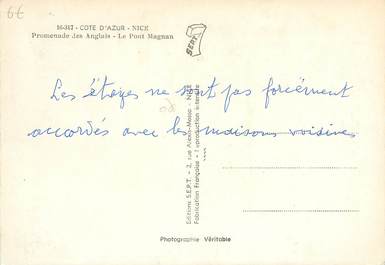 6€
16-347 - COTE D'AZUR - NICE
Promenade des Anglais - Le Pont Magnan
Les étages ne sont pas forcément
accordés avec les maisons voisines
Editions S.E.P.T. - 2, rue - NICE
Fabrication Française - Reproduction interdite
Photographie Véritable